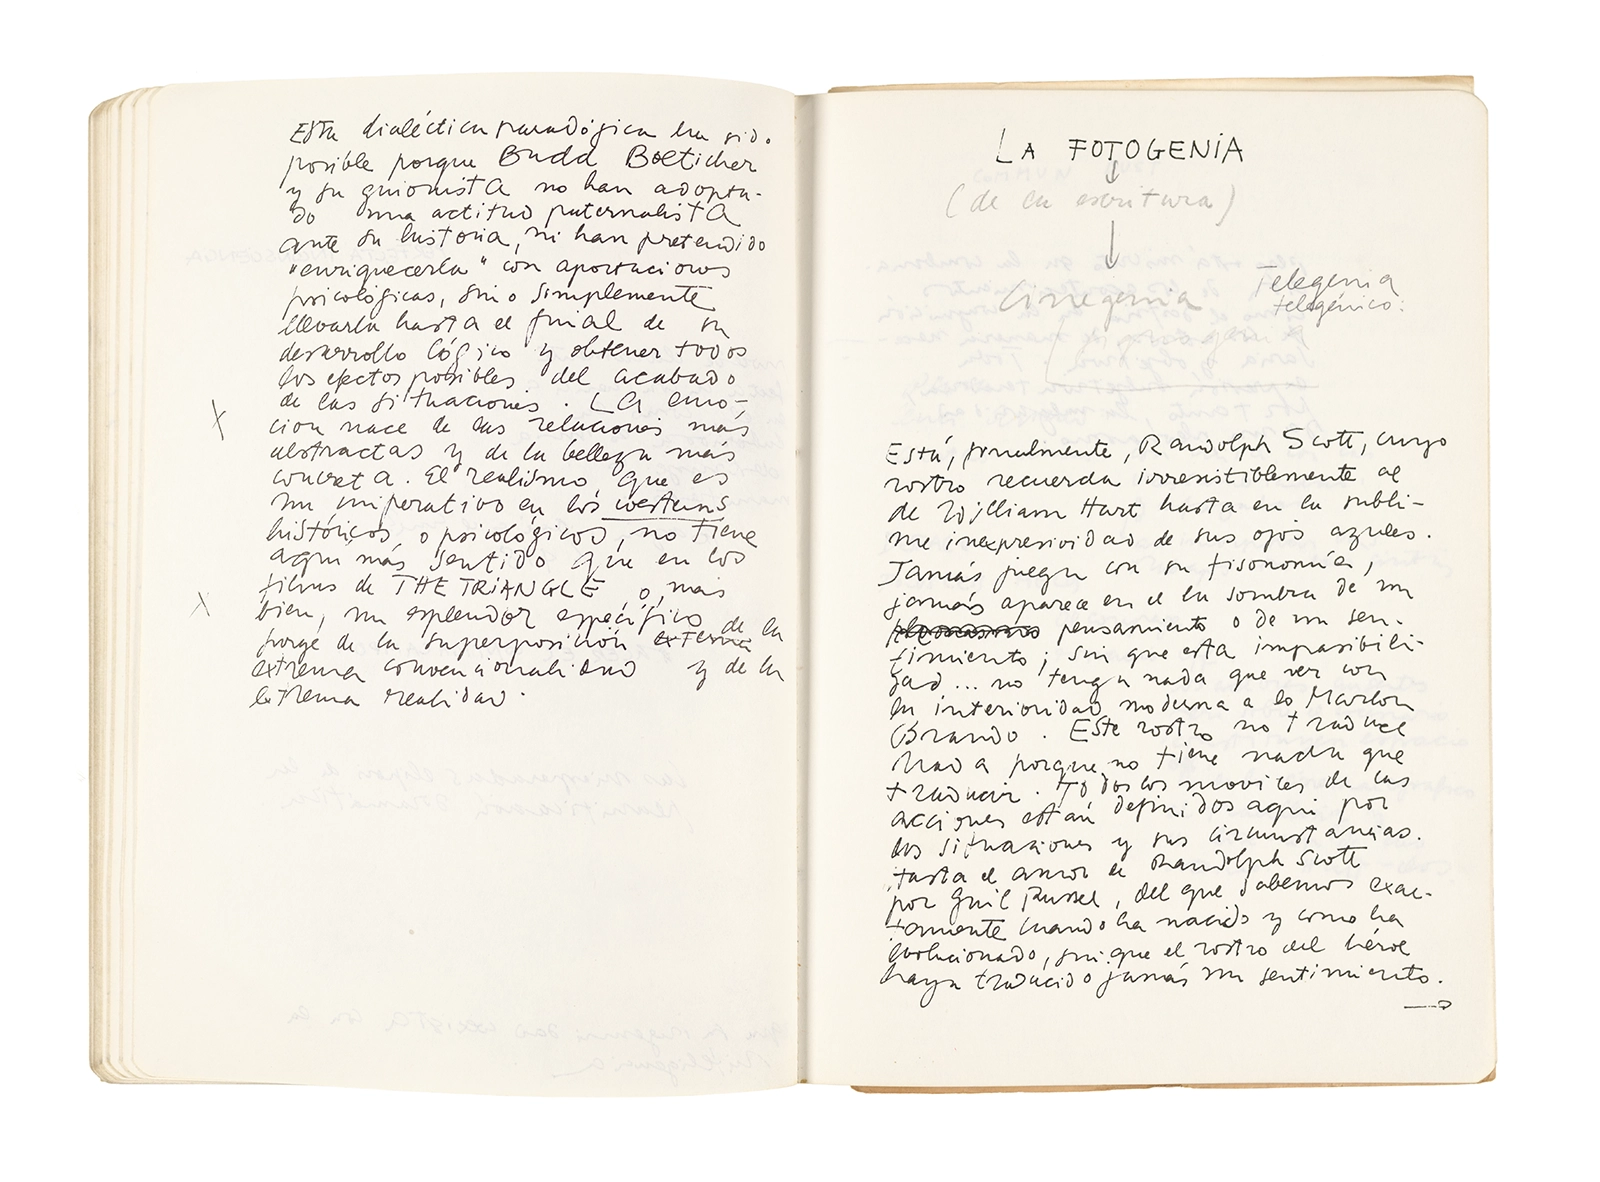 Esta dialéctica paradógica ha sido
posible porque Budd Boeticher
y su guionista no han adopta-
do una actitud paternalista
ante su historia, ni han pretendido
"enriquecerla" con aportaciones
psicológicas, sino simplemente
llevarla hasta el final de su
desarrollo lógico y obtener todos
los efectos posibles del acabado
de las situaciones. La emo-
X
ción nace de las relaciones más
abstractas y de la belleza más
concreta. El realismo, que es
un imperativo en los westerns
históricos o psicológicos, no tiene
aquí más sentido que en los
films de THE TRiANGLE o, más
X
bien, un esplendor específico
surge de la superposición de la
extrema convencionalidad y de la
extrema realidad.
LA FOTOGENIA
(de la escritura)
Cinegenia
Telegenia
telegénico:
Está, finalmente, Randolph Scott, cuyo
rostro recuerda irresistiblemente al
de William Hart hasta en la subli-
me inexpresividad de sus ojos azules.
Jamás juega con su fisonomía,
jamás aparece en él la sombra de un
pensamiento o de un sen-
timiento; sin que esta impasibili-
dad... no tenga nada que ver con
la interioridad moderna a lo Marlon
Brando. Este rostro no traduce
nada porque no tiene nada que
traducir. Todos los moviles de las
acciones están definidos aqui por
las situaciones y sus circunstancias.
Hasta el amor de Randolph Scott
por Gail Russel, del que sabemos exac-
tamente cuando ha nacido y como ha
evolucionado, sin que el rostro del héroe
haya traducido jamás un sentimiento.